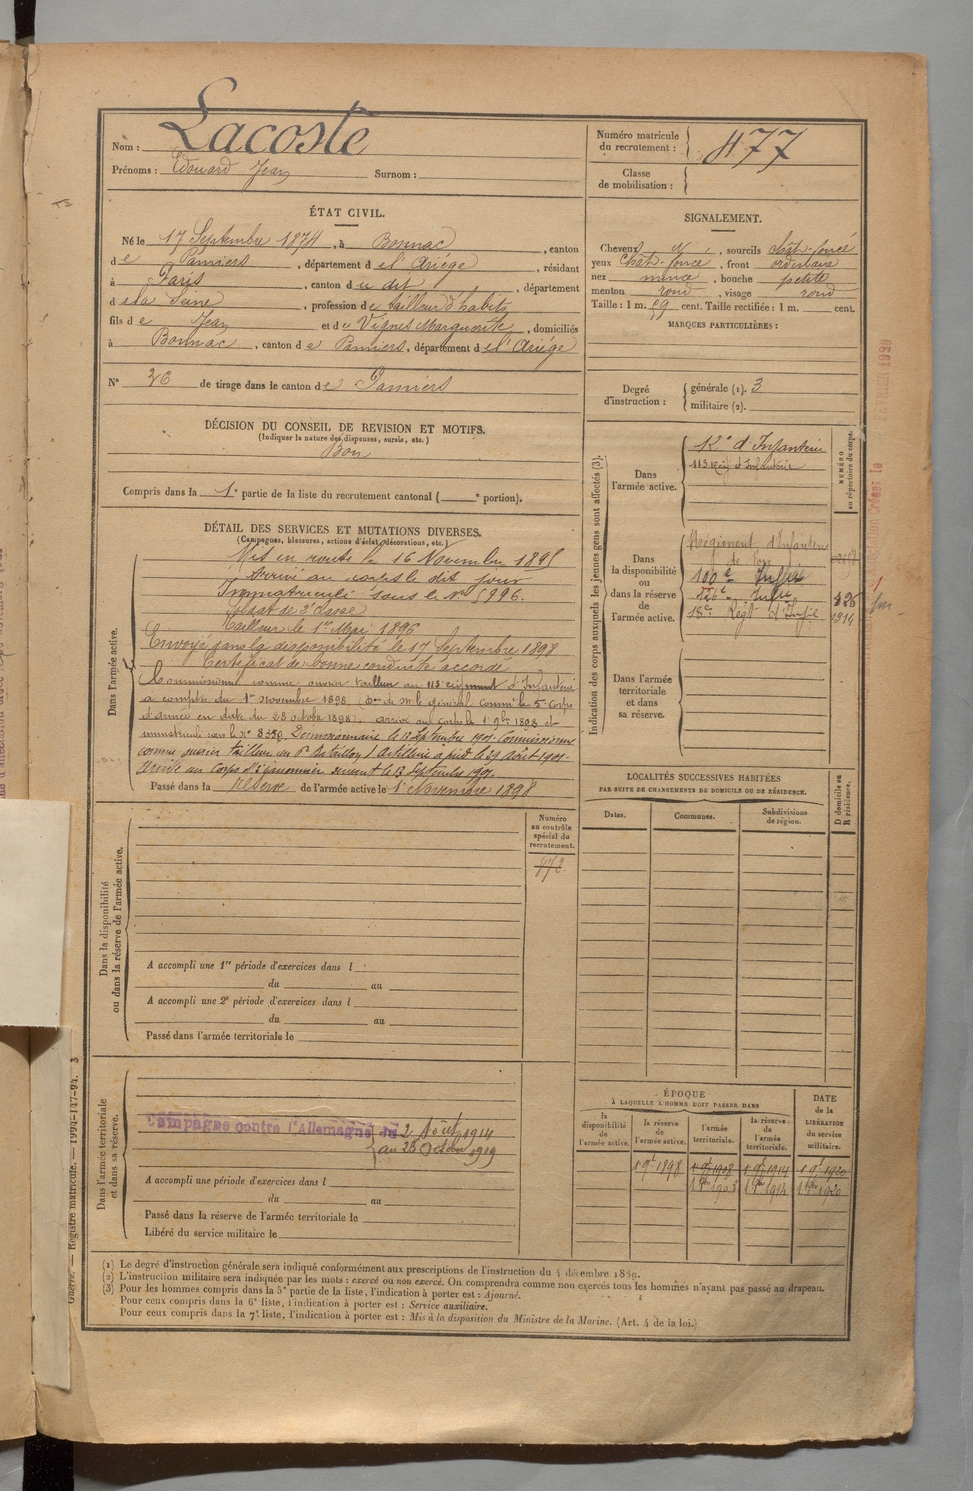 Nom : Lacoste
Prénoms : Edouard Jean Surnom :
Numéro matricule du recrutement : 477
Classe de mobilisation :
ÉTAT CIVIL.
Né le 17 Septembre 1874, à Bonnac, canton
de Pamiers, département de l'Ariége, résidant
à Paris, canton du dit, département
de la Seine, profession de tailleur d'habits
fils de Jean et de Vignes Marguerite, domiciliés
à Bonnac, canton de Pamiers, département de l'Ariége
N° 26 de tirage dans le canton de Pamiers
SIGNALEMENT.
Cheveux, sourcils chât-foncé
yeux Chât-foncé, front ordinaire
nez mince, bouche petite
menton rond, visage rond
Taille : 1 m. 59 cent. Taille rectifiée : 1 m. cent.
MARQUES PARTICULIÈRES :
Degré d'instruction : générale (1). 3
militaire (2).
DÉCISION DU CONSEIL DE REVISION ET MOTIFS.
(Indiquer la nature des dispenses, sursis, etc.)
Bon
Compris dans la 1e partie de la liste du recrutement cantonal ( e portion).
DÉTAIL DES SERVICES ET MUTATIONS DIVERSES.
(Campagnes, blessures, actions d'éclat, décorations, etc.)
Dans l'armée active.
Mis en route le 16 Novembre 1895
Arrivé au corps le dit jour
Immatriculé sous le N° 5996.
Soldat de 2e classe
Tailleur le 1er Mai 1896
Envoyé dans la disponibilité le 17 Septembre 1898
Certificat de bonne conduite accordé
Commissionné comme ouvrier tailleur au 113e régiment d'Infanterie
à compter du 1er novembre 1898 (de le général commt le 5e Corps
d'armée en date du 28 octobre 1898), arrivé au corps le 1er 9bre 1898 et
immatriculé sous le n° 8359. le 12 Septembre 1901. Commissionné
comme ouvrier tailleur au 6e Bataillon d'Artillerie à pied le 29 Août 1901.
Arrivé au Corps le 13 Septembre 1901.
Passé dans la réserve de l'armée active le 1er Novembre 1898
Indication des corps auxquels les jeunes gens sont affectés (3).
NUMÉRO au répertoire du corps.
Dans l'armée active.
12e d'Infanterie
113 Rég d'Infanterie
Dans la disponibilité ou dans la réserve de l'armée active.
Régiment d'Infanterie
100e Infie
126e Infie 426
18e Régt d'Infie 1314
Dans l'armée territoriale et dans sa réserve.
LOCALITÉS SUCCESSIVES HABITÉES
PAR SUITE DE CHANGEMENTS DE DOMICILE OU DE RÉSIDENCE.
Dates. Communes. Subdivisions de région. D domicile ou R résidence.
Dans la disponibilité ou dans la réserve de l'armée active.
Numéro au contrôle spécial du recrutement.
A accompli une 1re période d'exercices dans l
du au
A accompli une 2e période d'exercices dans l
du au
Passé dans l'armée territoriale le
Dans l'armée territoriale et dans sa réserve.
Campagne contre l'Allemagne du 2 Août 1914
au 23 Octobre 1919
A accompli une période d'exercices dans l
du au
Passé dans la réserve de l'armée territoriale le
Libéré du service militaire le
ÉPOQUE
À LAQUELLE L'HOMME DOIT PASSER DANS
la disponibilité de l'armée active. la réserve de l'armée active. l'armée territoriale. la réserve de l'armée territoriale. DATE de la LIBÉRATION du service militaire.
1 9e 1898 1 9e 1908 1 9e 1914 1 9e 1920
(1) Le degré d'instruction générale sera indiqué conformément aux prescriptions de l'instruction du 4 décembre 1889.
(2) L'instruction militaire sera indiquée par les mots : exercé ou non exercé. On comprendra comme non exercés tous les hommes n'ayant pas passé au drapeau.
(3) Pour les hommes compris dans la 5e partie de la liste, l'indication à porter est : Ajourné.
Pour ceux compris dans la 6e liste, l'indication à porter est : Service auxiliaire.
Pour ceux compris dans la 7e liste, l'indication à porter est : Mis à la disposition du Ministre de la Marine. (Art. 4 de la loi.)
Guerre. — Registre matricule. — 1994-147-94. 3